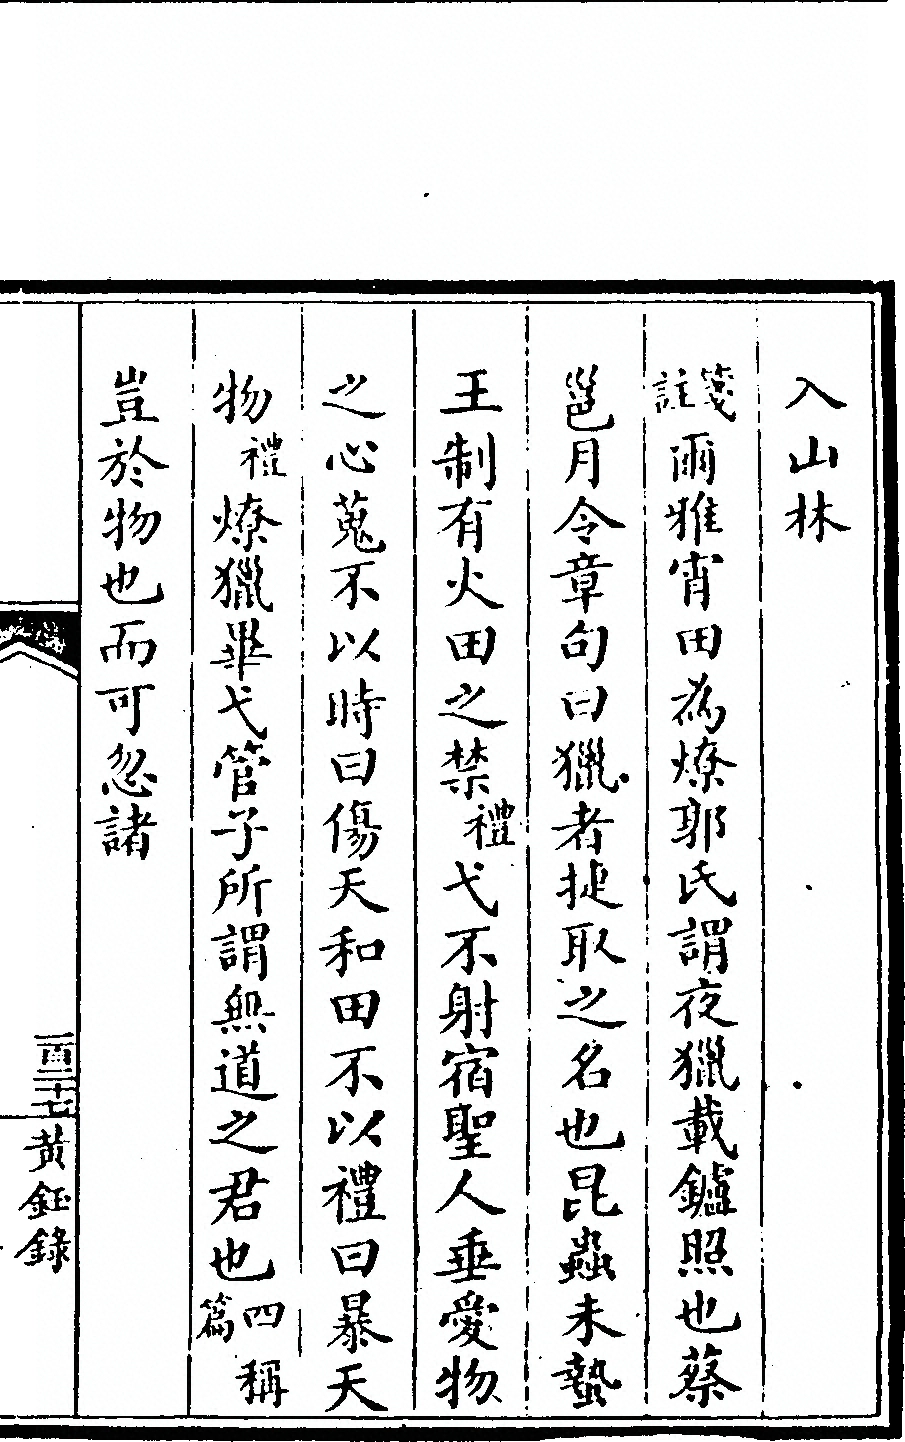 入山林
箋註爾雅宵田為燎郭氏謂夜獵載鑪照也蔡
邕月令章句曰獵者捷取之名也昆蟲未蟄
王制有火田之禁禮弋不射宿聖人垂愛物
之心蒐不以時曰傷天和田不以禮曰暴天
物禮燎獵畢弋管子所謂無道之君也四稱篇
豈於物也而可忽諸
黃鈺錄